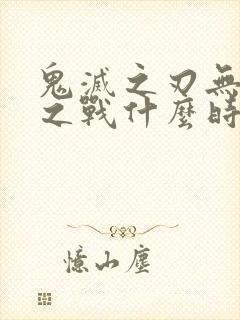 鬼滅之刃無
之戰什麼時
憶山塵